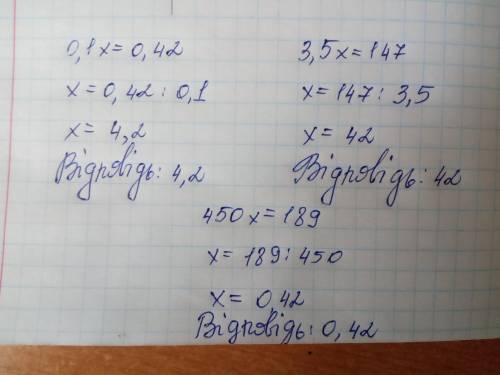 0,1x = 0,42
x = 0,42 : 0,1
x = 4,2
Відповідь: 4,2
3,5x = 147
x = 147 : 3,5
x = 42
Відповідь: 42
450x = 189
x = 189 : 450
x = 0 42
Відповідь: 0,42